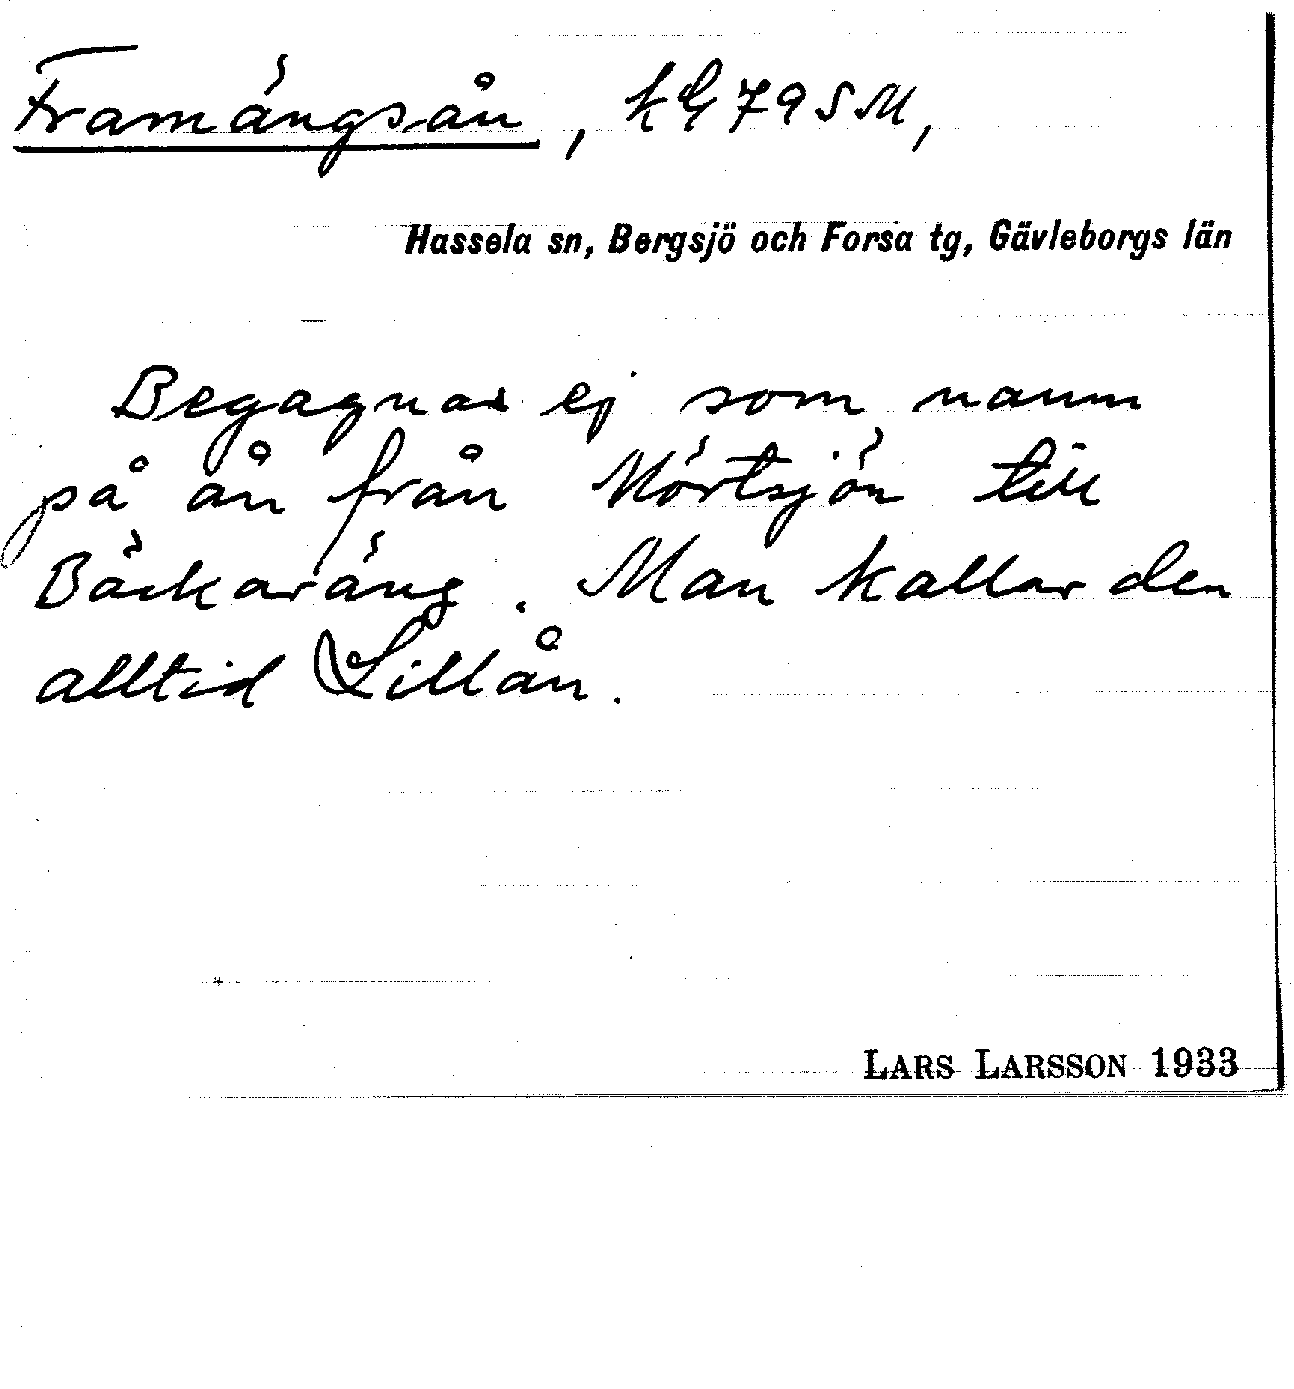 Framängsån, kG 79 SM,
Hassela sn, Bergsjö och Forsa tg, Gävleborgs län
Begagnas ej som namn
på ån från Mörtsjön till
Bäckaräng. Man kallar den
alltid Lillån.
LARS LARSSON 1933